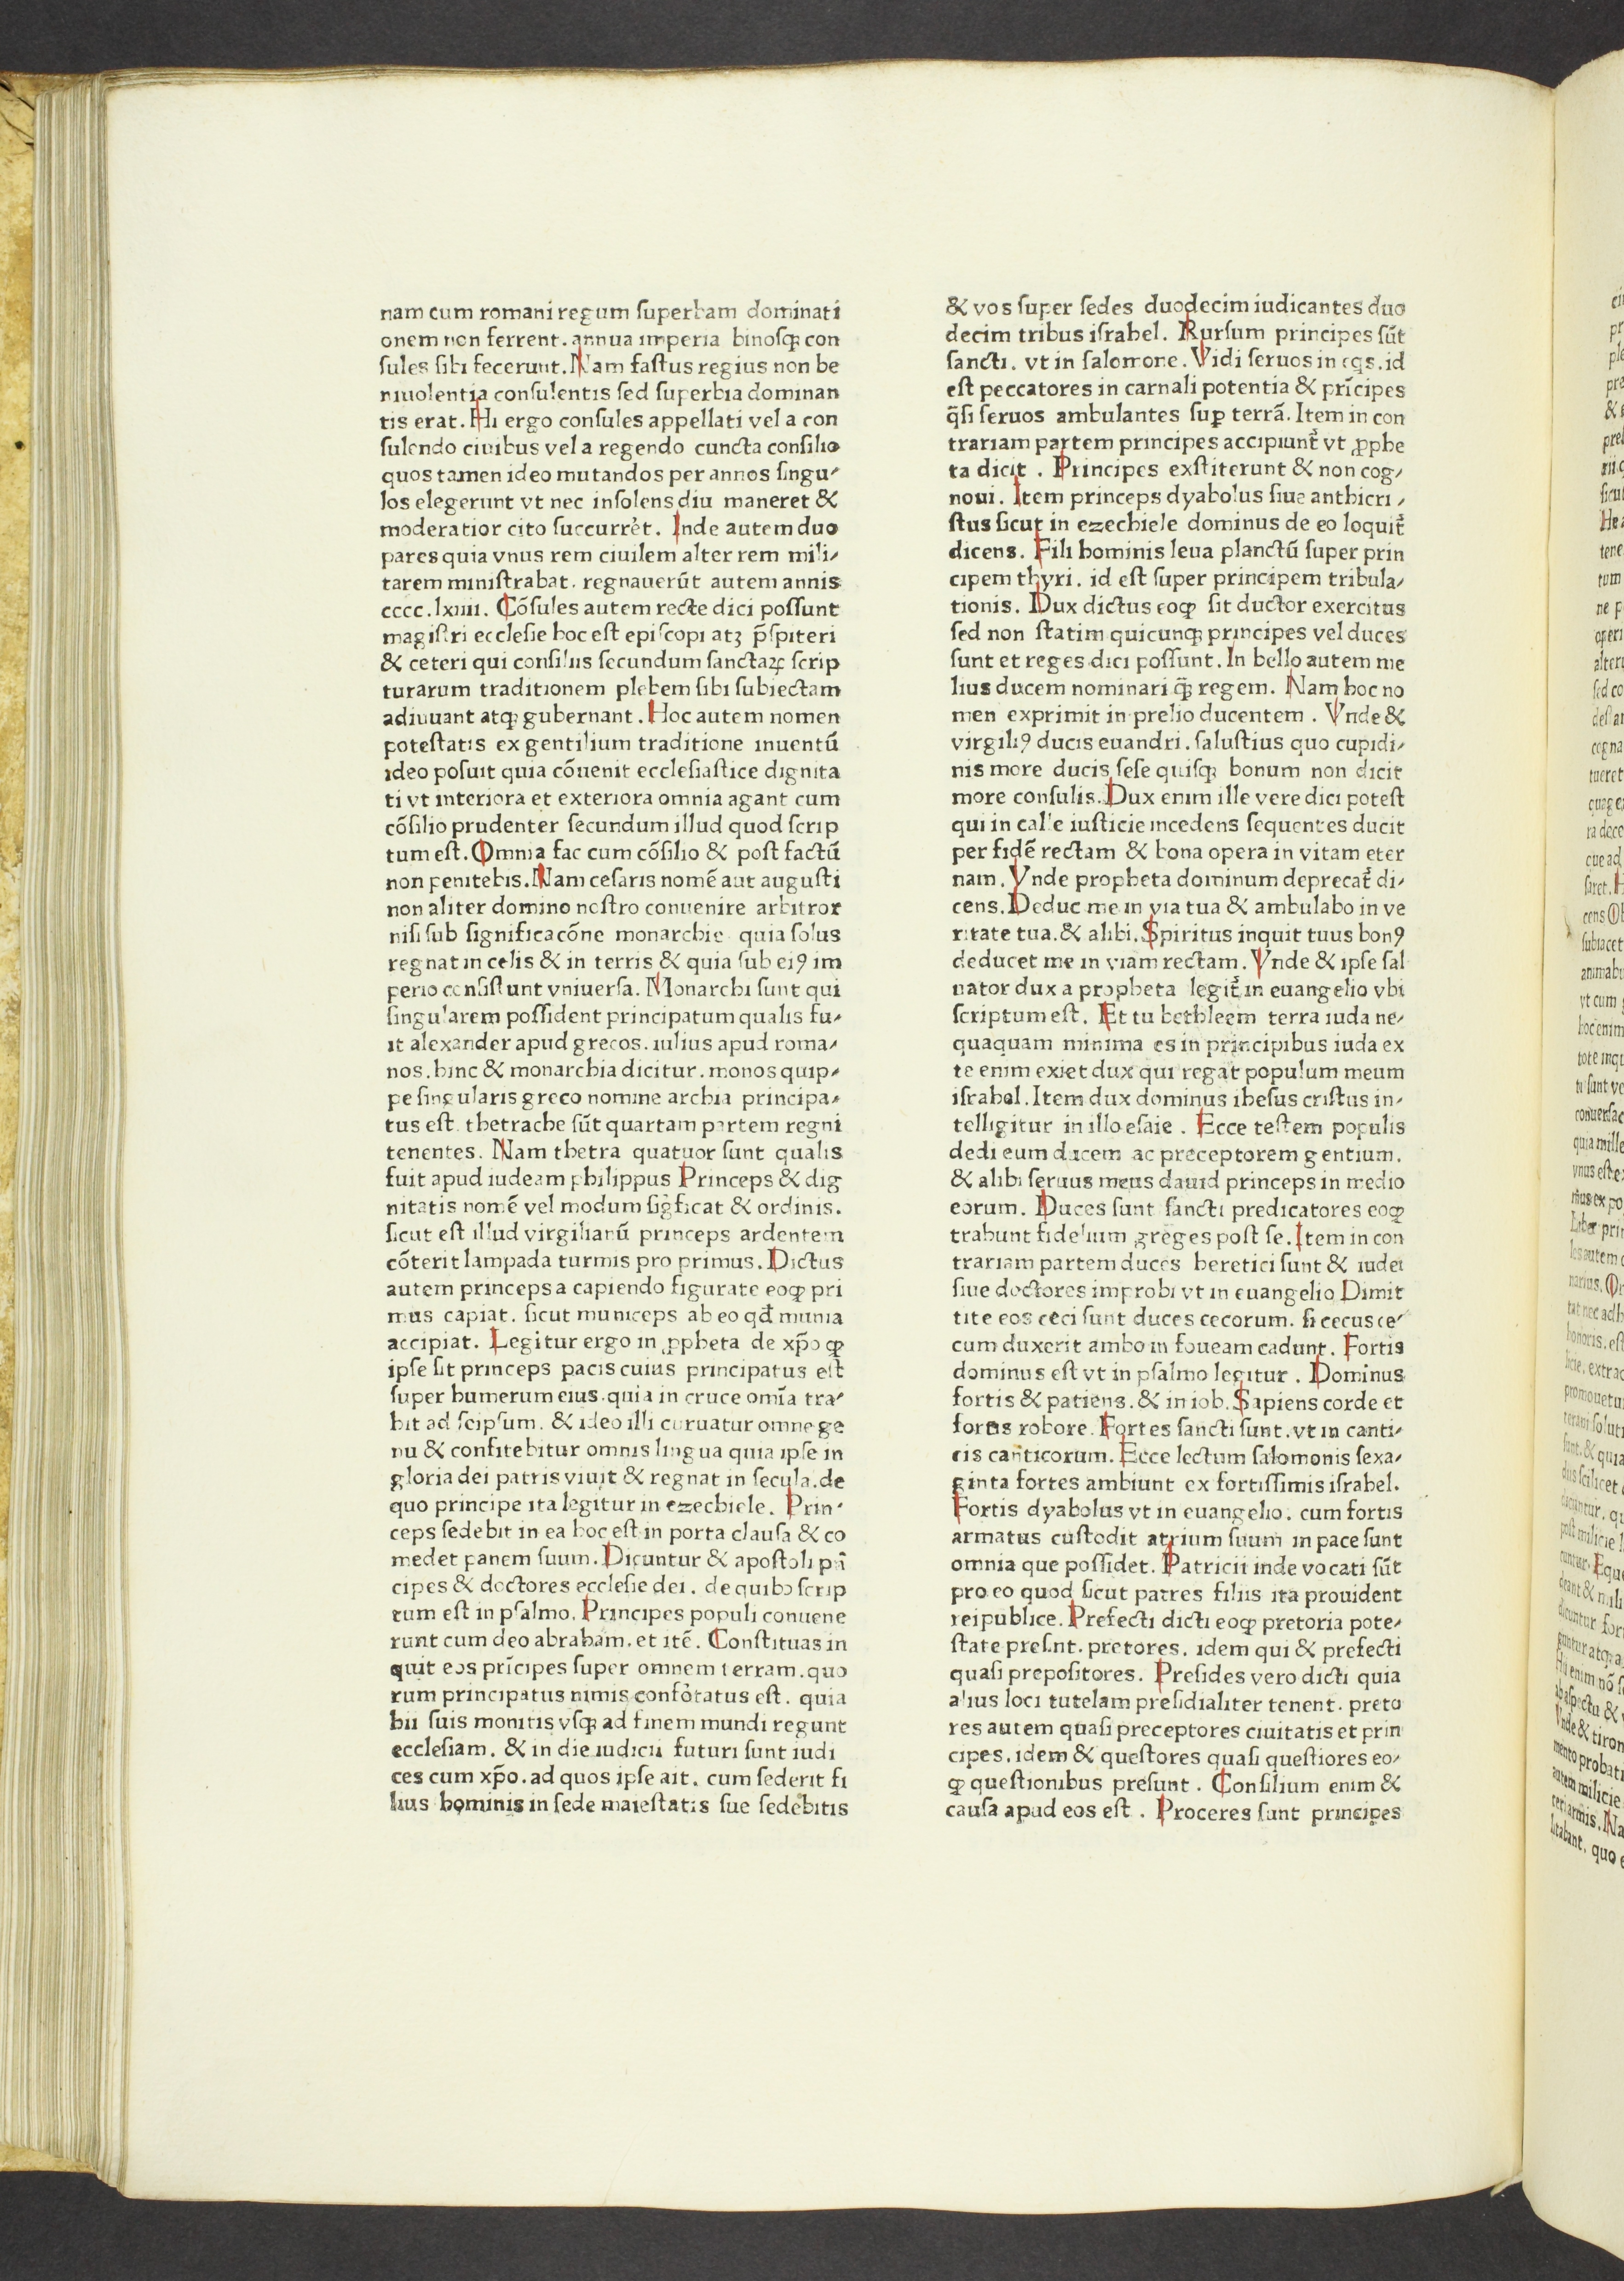 nam cum romani regum ſuperbam dominati
onem non ferrent. annua imperia binoſqꝫ con
ſules ſibi fecerunt. Nam faſtus regius non be
niuolentia conſulentis ſed ſuperbia dominan
tis erat. Hi ergo conſules appellati vel a con
ſulendo ciuibus vel a regendo cuncta conſilio
quos tamen ideo mutandos per annos ſingu⸗
los elegerunt vt nec inſolens diu maneret &
moderatior cito ſuccurrēt. Inde autem duo
pares quia vnus rem ciuilem alter rem mili⸗
tarem miniſtrabat. regnauerūt autem annis
cccc.lxiiii. Cōſules autem recte dici poſſunt
magiſtri eccleſie hoc eſt epiſcopi atꝫ p̄ſpiteri
& ceteri qui conſiliis ſecundum ſanctaꝝ ſcrip
turarum traditionem plebem ſibi ſubiectam
adiuuant atqꝫ gubernant. Hoc autem nomen
poteſtatis ex gentilium traditione inuentū
ideo poſuit quia cōuenit eccleſiaſtice dignita
ti vt interiora et exteriora omnia agant cum
cōſilio prudenter ſecundum illud quod ſcrip
tum eſt. Omnia fac cum cōſilio & poſt factū
non penitebis. Nam ceſaris nomē aut auguſti
non aliter domino noſtro conuenire arbitror
niſi ſub ſignificacōne monarchie quia ſolus
regnat in celis & in terris & quia ſub eiꝰ im
perio conſiſtunt vniuerſa. Monarchi ſunt qui
ſingularem poſſident principatum qualis fu⸗
it alexander apud grecos. iulius apud roma⸗
nos. hinc & monarchia dicitur. monos quip⸗
pe ſingularis greco nomine archia principa⸗
tus eſt. thetrache ſūt quartam partem regni
tenentes. Nam thetra quatuor ſunt qualis
fuit apud iudeam philippus Princeps & dig
nitatis nomē vel modum ſiḡficat & ordinis.
ſicut eſt illud virgilianū princeps ardentem
cōterit lampada turmis pro primus. Dictus
autem princeps a capiendo figurate eoꝙ pri
mus capiat. ſicut municeps ab eo qđ munia
accipiat. Legitur ergo in ꝓpheta de xp̄o ꝙ
ipſe ſit princeps pacis cuius principatus eſt
ſuper humerum eius. quia in cruce omīa tra⸗
hit ad ſeipſum. & ideo illi curuatur omne ge
nu & confitebitur omnis lingua quia ipſe in
gloria dei patris viuit & regnat in ſecula. de
quo principe ita legitur in ezechiele. Prin⸗
ceps ſedebit in ea hoc eſt in porta clauſa & co
medet panem ſuum. Dicuntur & apoſtoli pn̄
cipes & doctores eccleſie dei. de quibꝫ ſcrip
tum eſt in pſalmo. Principes populi conuene
runt cum deo abraham. et itē. Conſtituas in
quit eos prīcipes ſuper omnem terram. quo
rum principatus nimis confōtatus eſt. quia
hii ſuis monitis vſqꝫ ad finem mundi regunt
eccleſiam. & in die iudicii futuri ſunt iudi
ces cum xp̄o. ad quos ipſe ait. cum ſederit fi
lius hominis in ſede maieſtatis ſue ſedebitis
& vos ſuper ſedes duodecim iudicantes duo
decim tribus iſrahel. Rurſum principes ſūt
ſancti. vt in ſalomone. Vidi ſeruos in eqs. id
eſt peccatores in carnali potentia & prīcipes
q̄ſi ſeruos ambulantes ſuꝑ terrā. Item in con
trariam partem principes accipiunt᷑ vt ꝓphe
ta dicit. Principes exſtiterunt & non cog⸗
noui. Item princeps dyabolus ſiue anthicri⸗
ſtus ſicut in ezechiele dominus de eo loquit᷑
dicens. Fili hominis leua planctū ſuper prin
cipem thyri. id eſt ſuper principem tribula⸗
tionis. Dux dictus eoꝙ ſit ductor exercitus
ſed non ſtatim quicunqꝫ principes vel duces
ſunt et reges dici poſſunt. In bello autem me
lius ducem nominari q̄ꝫ regem. Nam hoc no
men exprimit in prelio ducentem. Vnde &
virgiliꝰ ducis euandri. ſaluſtius quo cupidi⸗
nis more ducis ſeſe quiſqꝫ bonum non dicit
more conſulis. Dux enim ille vere dici poteſt
qui in calle iuſticie incedens ſequentes ducit
per fidē rectam & bona opera in vitam eter
nam. Vnde propheta dominum deprecat᷑ di⸗
cens. Deduc me in via tua & ambulabo in ve
ritate tua. & alibi. Spiritus inquit tuus bonꝰ
deducet me in viam rectam. Vnde & ipſe ſal
uator dux a propheta legit᷑ in euangelio vbi
ſcriptum eſt. Et tu bethleem terra iuda ne⸗
quaquam minima es in principibus iuda ex
te enim exiet dux qui regat populum meum
iſrahel. Item dux dominus iheſus criſtus in⸗
telligitur in illo eſaie. Ecce teſtem populis
dedi eum ducem ac preceptorem gentium.
& alibi ſeruus meus dauid princeps in medio
eorum. Duces ſunt ſancti predicatores eoꝙ
trahunt fidelium greges poſt ſe. Item in con
trariam partem duces heretici ſunt & iudei
ſiue doctores improbi vt in euangelio Dimit
tite eos ceci ſunt duces cecorum. ſi cecus ce⸗
cum duxerit ambo in foueam cadunt. Fortis
dominus eſt vt in pſalmo legitur. Dominus
fortis & patiens. & in iob. Sapiens corde et
fortis robore. Fortes ſancti ſunt. vt in canti⸗
cis canticorum. Ecce lectum ſalomonis ſexa⸗
ginta fortes ambiunt ex fortiſſimis iſrahel.
Fortis dyabolus vt in euangelio. cum fortis
armatus cuſtodit atrium ſuum in pace ſunt
omnia que poſſidet. Patricii inde vocati ſūt
pro eo quod ſicut patres filiis ita prouident
reipublice. Prefecti dicti eoꝙ pretoria pote⸗
ſtate preſint. pretores. idem qui & prefecti
quaſi prepoſitores. Preſides vero dicti quia
alius loci tutelam preſidialiter tenent. preto
res autem quaſi preceptores ciuitatis et prin
cipes. idem & queſtores quaſi queſtiores eo⸗
ꝙ queſtionibus preſunt. Conſilium enim &
cauſa apud eos eſt. Proceres ſunt principes